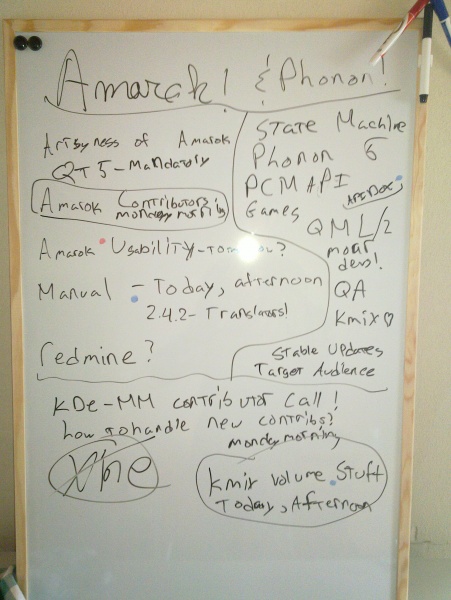 Amarok! & Phonon!
Artsyness of Amarok
QT5-Mandatory
Amarok Contributors
monday morning
Amarok Usability-Tomorrow?
Manual - Today, afternoon
2.4.2- Translators!
redmine?
State Machine
Phonon 5
PCM API
APIDOX
Games
QML/2
moar
devs!
QA
Kmix ♡
Stable Updates
Target Audience
KDE-MM contributor call!
how to handle new contribs?
monday morning
Kmix volume Stuff
Today, Afternoon